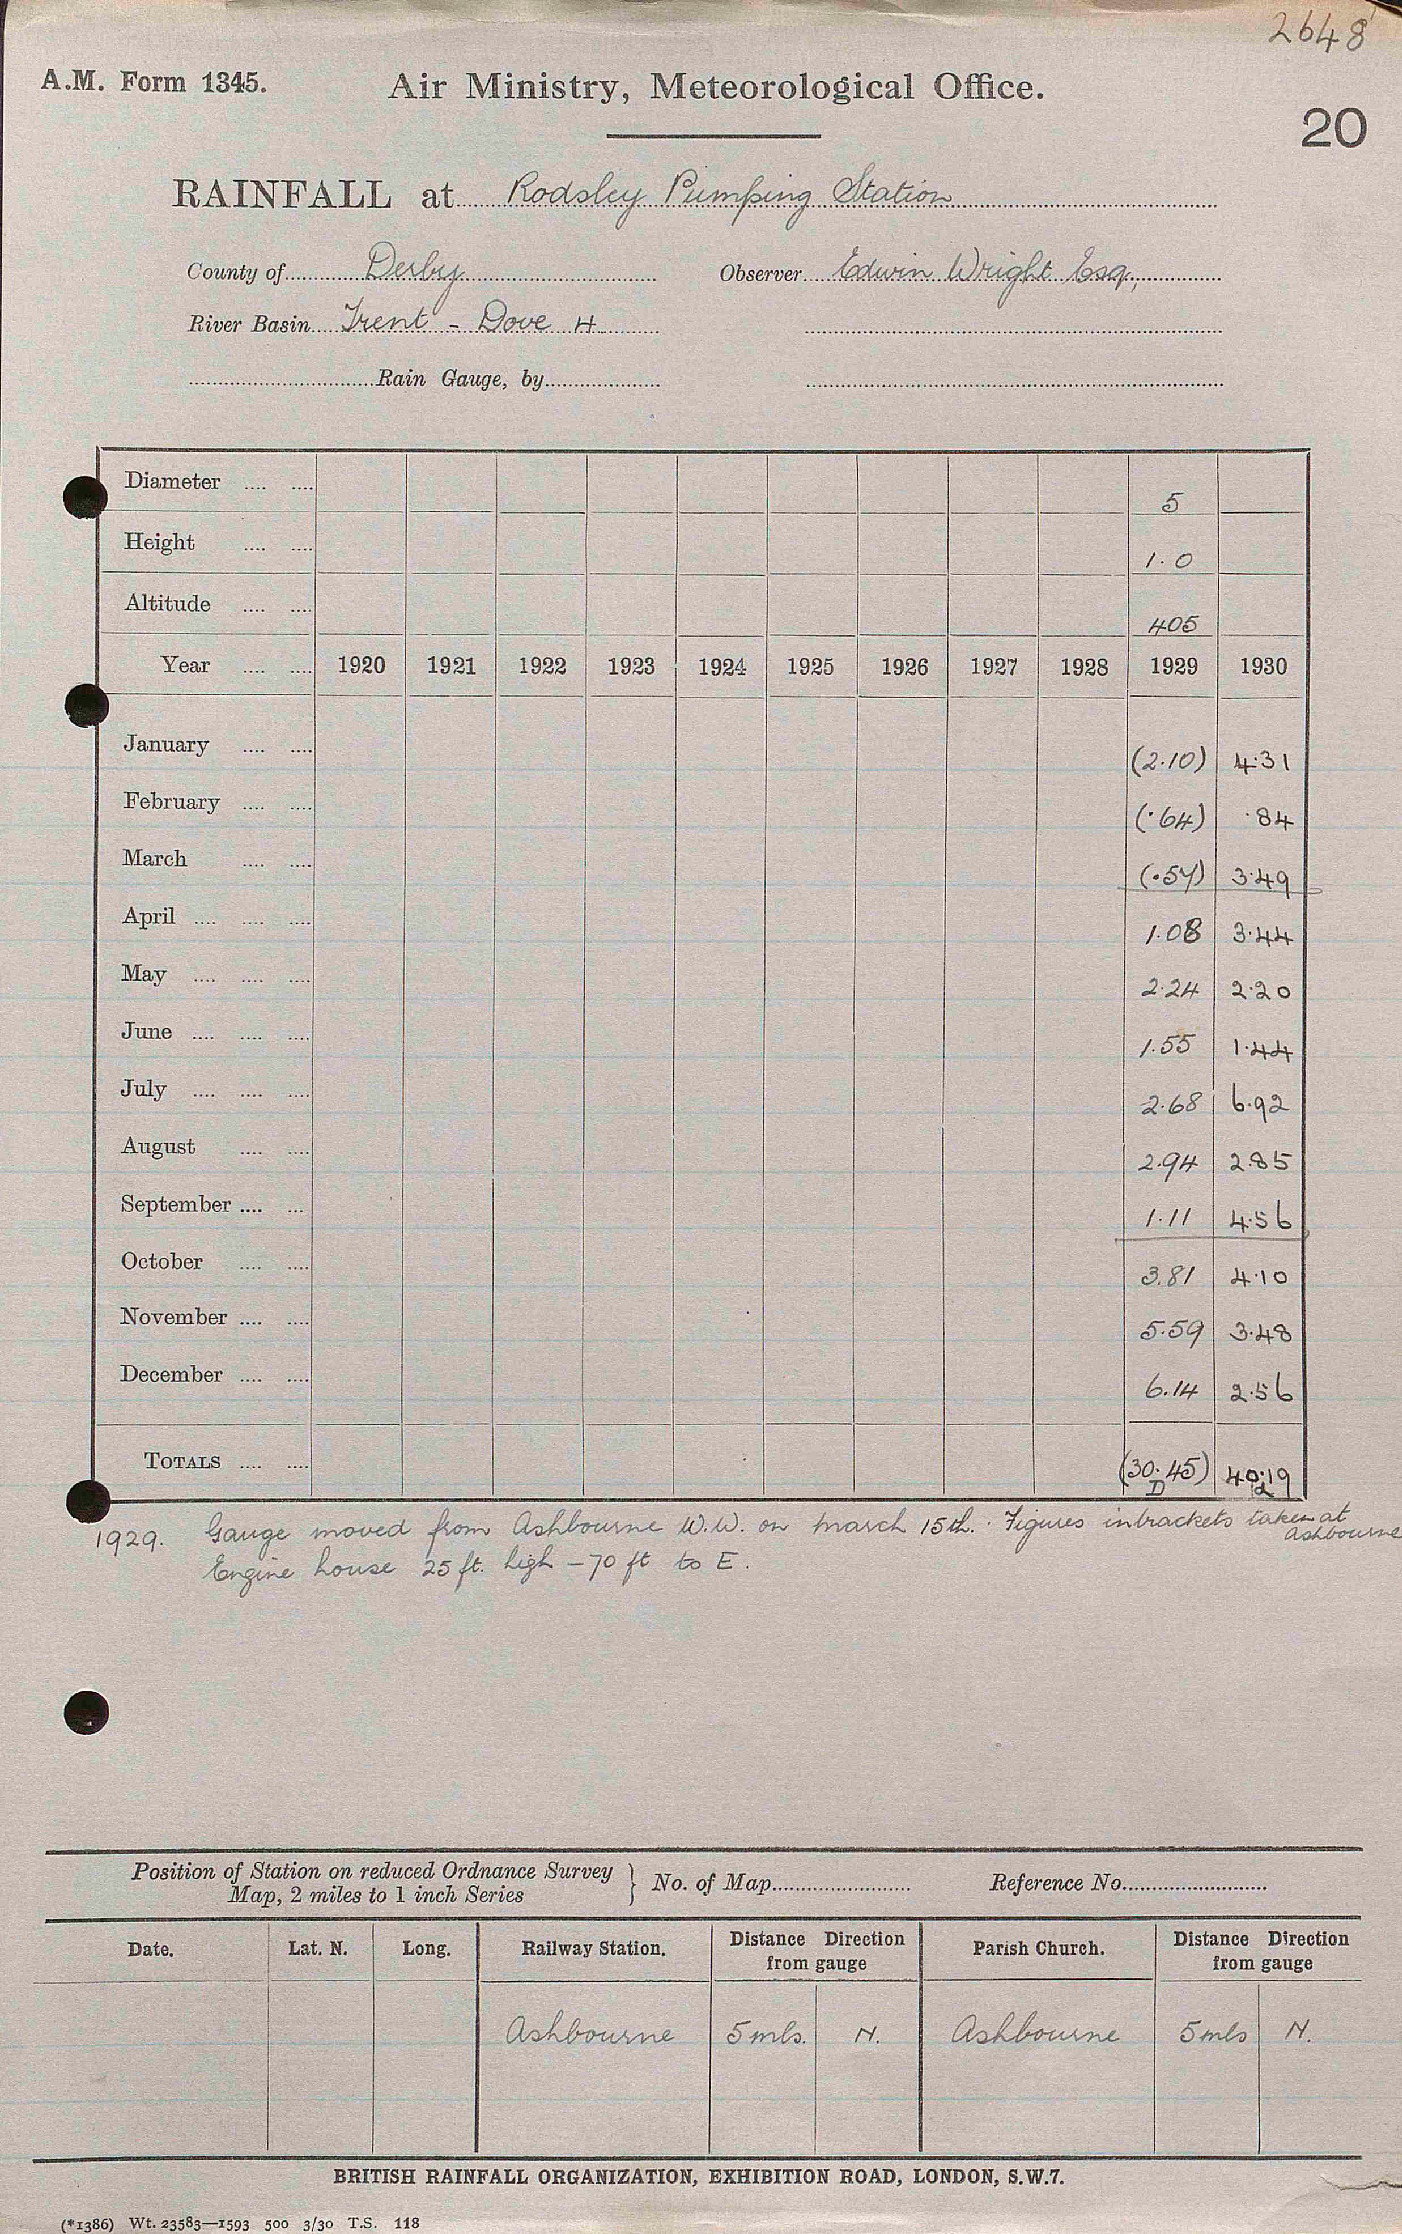 2648
A.M. Form 1345. Air Ministry, Meteorological Office.
20
RAINFALL at Rodsley Pumping Station
County of Derby Observer Edwin Wright Esq.,
River Basin Trent - Dove 4
Rain Gauge, by
Diameter .... .... 5
Height .... .... 1.0
Altitude .... .... 405
Year .... .... 1920 1921 1922 1923 1924 1925 1926 1927 1928 1929 1930
January .... .... (2.10) 4.31
February .... .... (.64) .84
March .... .... (.57) 3.49
April .... .... .... 1.08 3.44
May .... .... .... 2.24 2.20
June .... .... .... 1.55 1.44
July .... .... .... 2.68 6.92
August .... .... 2.94 2.85
September .... ... 1.11 4.56
October .... .... 3.81 4.10
November .... .... 5.59 3.48
December .... .... 6.14 2.56
TOTALS .... .... (30.45) 40.19
D 2
1929. Gauge moved from Ashbourne W.W. on March 15th. Figures in brackets taken at Ashbourne
Engine house 25 ft. high - 70 ft to E.
Position of Station on reduced Ordnance Survey Map, 2 miles to 1 inch Series } No. of Map Reference No.
Date. Lat. N. Long. Railway Station. Distance Direction from gauge Parish Church. Distance Direction from gauge
Ashbourne 5 mls. N. Ashbourne 5 mls N.
BRITISH RAINFALL ORGANIZATION, EXHIBITION ROAD, LONDON, S.W.7.
(*1386) Wt. 23583—1593 500 3/30 T.S. 118